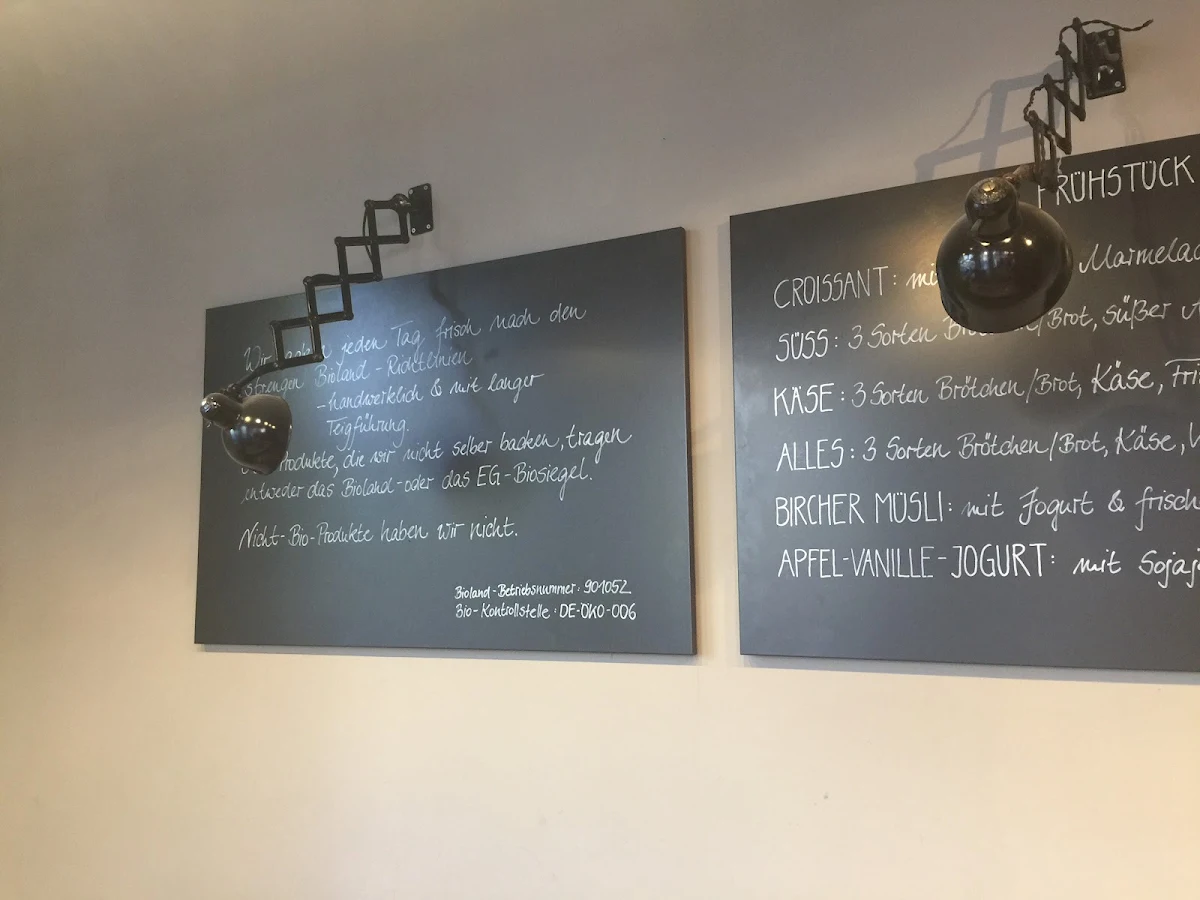 Wir backen jeden Tag frisch nach den
strengen Bioland-Richtlinien
-handwerklich & mit langer
Teigführung.
Produkte, die wir nicht selber backen, tragen
entweder das Bioland- oder das EG-Biosiegel.
Nicht-Bio-Produkte haben wir nicht.
Bioland-Betriebsnummer: 901052
Bio-Kontrollstelle: DE-ÖKO-006
FRÜHSTÜCK
CROISSANT: Marmelad
SÜSS: 3 Sorten /Brot, süßer
KÄSE: 3 Sorten Brötchen/Brot, Käse,
ALLES: 3 Sorten Brötchen/Brot, Käse,
BIRCHER MÜSLI: mit Jogurt & frisch
APFEL-VANILLE-JOGURT: mit Soja